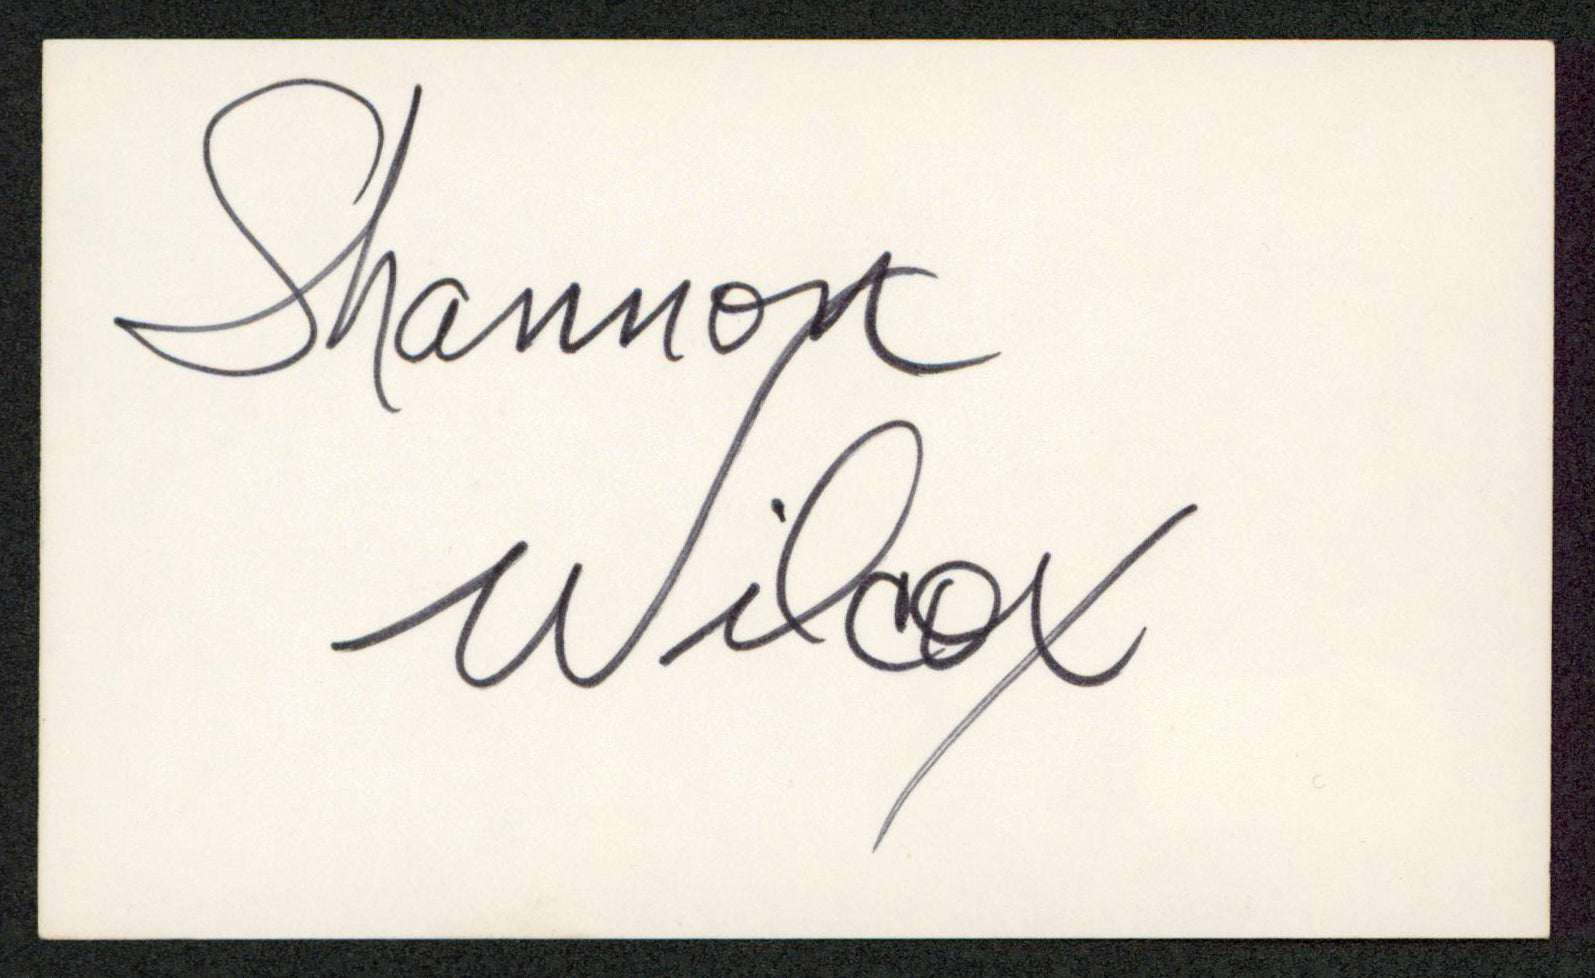 Shannon
Wilcox